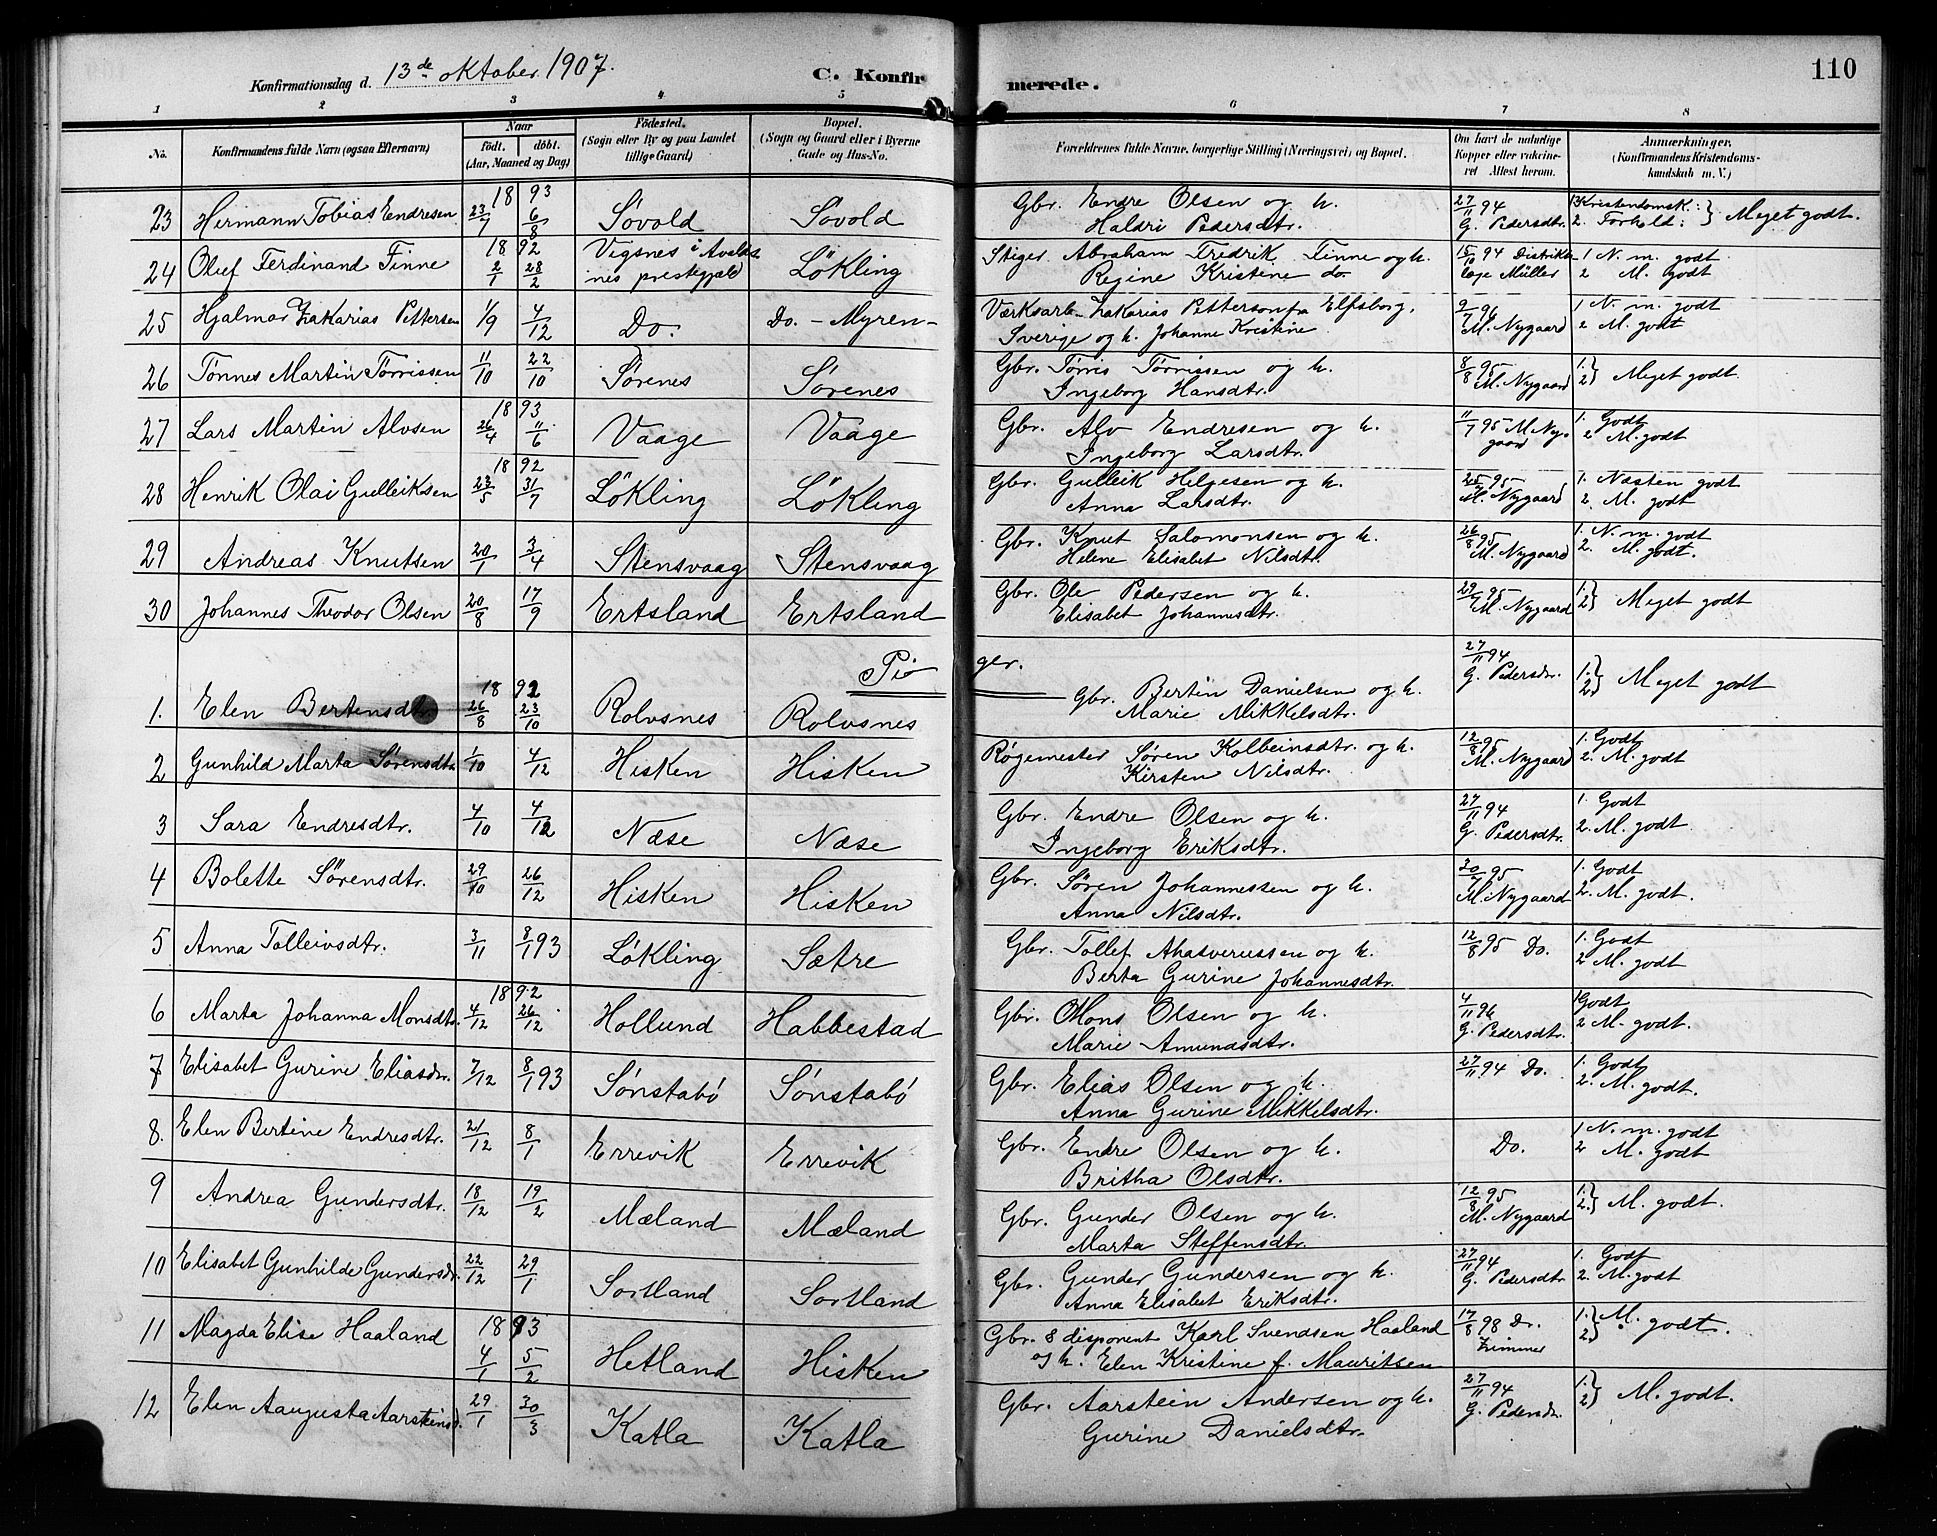 Konfirmationsdag d. 13de oktober 1907.
C. Konfirmerede.
110
1 2 3 4 5 6 7 8
No. Konfirmandens fulde Navn (ogsaa Efternavn) Naar født. døbt. (Aar, Maaned og Dag) Fødested. (Sogn eller By og paa Landet tillige Gaard) Bopæl. (Sogn og Gaard eller i Byerne Gade og Hus-No. Forældrenes fulde Navne, borgerlige Stilling (Næringsvei) og Bopæl. Om havt de naturlige Kopper eller vakcineret Attest herom. Anmærkninger. (Konfirmandens Kristendomskundskab m. V.)
23 Hermann Tobias Endresen 1893 23/7 6/8 Søvold Søvold Gbr. Endre Olsen og h. Haldri Pedersdtr. 27/11 94 G. Pedersdtr. 1. Kristendomsk.: 2. Forhold: } Meget godt.
24 Oluf Ferdinand Finne 1892 2/1 28/2 Vigsnes i Avaldsnes prestegjæld Løkling Stiger Abraham Fredrik Finne og h. Regine Kristine do 15/10 94 Distriktslege Müller 1 N. m. godt 2 M. godt
25 Hjalmar Zakarias Pettersen 1/9 4/12 Do. Do. - Myren - Værksarb. Zakarias Petterson fra Elfsborg, Sverige og h. Johanne Kristine 9/7 96 M. Nygaard 1 N. m. godt 2 M. godt
26 Tønnes Martin Tørrissen 11/10 22/10 Sørenes Sørenes Gbr. Tørris Tørrissen og h. Ingeborg Hansdtr. 8/8 95 M. Nygaard 1. 2 } Meget godt.
27 Lars Martin Alvsen 1893 26/4 11/6 Vaage Vaage Gbr. Alv Endresen og h. Ingeborg Larsdtr. 11/7 95 M Nygaard 1. Godt 2 M. godt
28 Henrik Olai Gulleiksen 1892 23/5 31/7 Løkling Løkling Gbr. Gulleik Helgesen og h. Anna Larsdtr. 95 M. Nygaard 1. Næsten godt 2. M. godt
29 Andreas Knutsen 20/1 3/4 Stensvaag Stensvaag Gbr. Knut Salomonsen og h. Helene Elisabet Nilsdtr. 26/8 95 M. Nygaard 1. N. m. godt 2. M. godt.
30 Johannes Theodor Olsen 20/8 17/9 Ertsland Ertsland Gbr. Ole Pedersen og h. Elisabet Johannesdtr. 95 M. Nygaard 1. 2 } Meget godt
Piger.
1. Elen Bertensdtr. 1892 26/8 23/10 Rolvsnes Rolvsnes Gbr. Bertin Danielsen og h. Marie Mikkelsdtr. 27/11 94 G. Pedersdr. 1. 2 } Meget godt
2 Gunhild Marta Sørensdtr 1/10 4/12 Hisken Hisken Røgemester Søren Kolbeinsdtr. og h. Kirsten Nilsdtr. 12/8 95 M. Nygaard 1. Godt 2. M. godt
3 Sara Endresdtr. 4/10 4/12 Næse Næse Gbr. Endre Olsen og h. Ingeborg Eriksdtr. 27/11 94 G. Pedersdtr. 1. Godt 2. M. godt
4 Bolette Sørensdtr. 29/10 26/12 Hisken Hisken Gbr. Søren Johannessen og h. Anna Nilsdtr. 30/7 95 M. Nygaard 1. Godt 2. M. godt.
5 Anna Tolleivsdtr. 3/11 8/1 93 Løkling Sætre Gbr. Tollef Ahasverussen og h. Berta Gurine Johannesdtr. 12/8 95 Do. 1. Godt 2 M. godt
6 Marta Johanna Monsdtr. 1892 4/12 26/12 Hollund Habbestad Gbr. Mons Olsen og h. Marie Amundsdtr. 4/11 96 G. Pedersdtr. 1 Godt 2 M. godt.
7 Elisabet Gurine Eliasdr. 7/12 8/1 93 Sønstabø Sønstabø Gbr. Elias Olsen og h. Anna Gurine Mikkelsdtr. 27/11 94 Do. 1. Godt 2. M. godt.
8. Elen Bertine Endresdtr. 21/12 8/1 Errevik Errevik Gbr. Endre Olsen og h. Britha Olsdtr. Do. 1 N. m. godt 2 M. godt
9 Andrea Gundersdtr. 18/12 19/2 Mæland Mæland Gbr. Gunder Olsen og h. Marta Steffensdtr. 12/8 95 M. Nygaard 1. 2. } M. godt.
10 Elisabet Gunhilde Gundersdr. 22/12 29/1 Sortland Sortland Gbr. Gunder Gundersen og h. Anna Elisabet Eriksdtr. 27/11 94 G. Pedersdtr 1. Godt 2. M. godt
11 Magda Elise Haaland 1893 4/1 5/2 Hetland Hisken Gbr. & disponent Karl Svendsen Haaland og h. Elen Kristine f. Mauritsen 17/8 98 Dr. Zimmer 1. 2 } M. godt.
12 Elen Aaugusta Aarsteinsd. 29/1 30/3 Katla Katla Gbr. Aarstein Andersen og h. Gurine Danielsdtr. 27/11 94 G. Pedersdr. 1. 2 } M. godt.